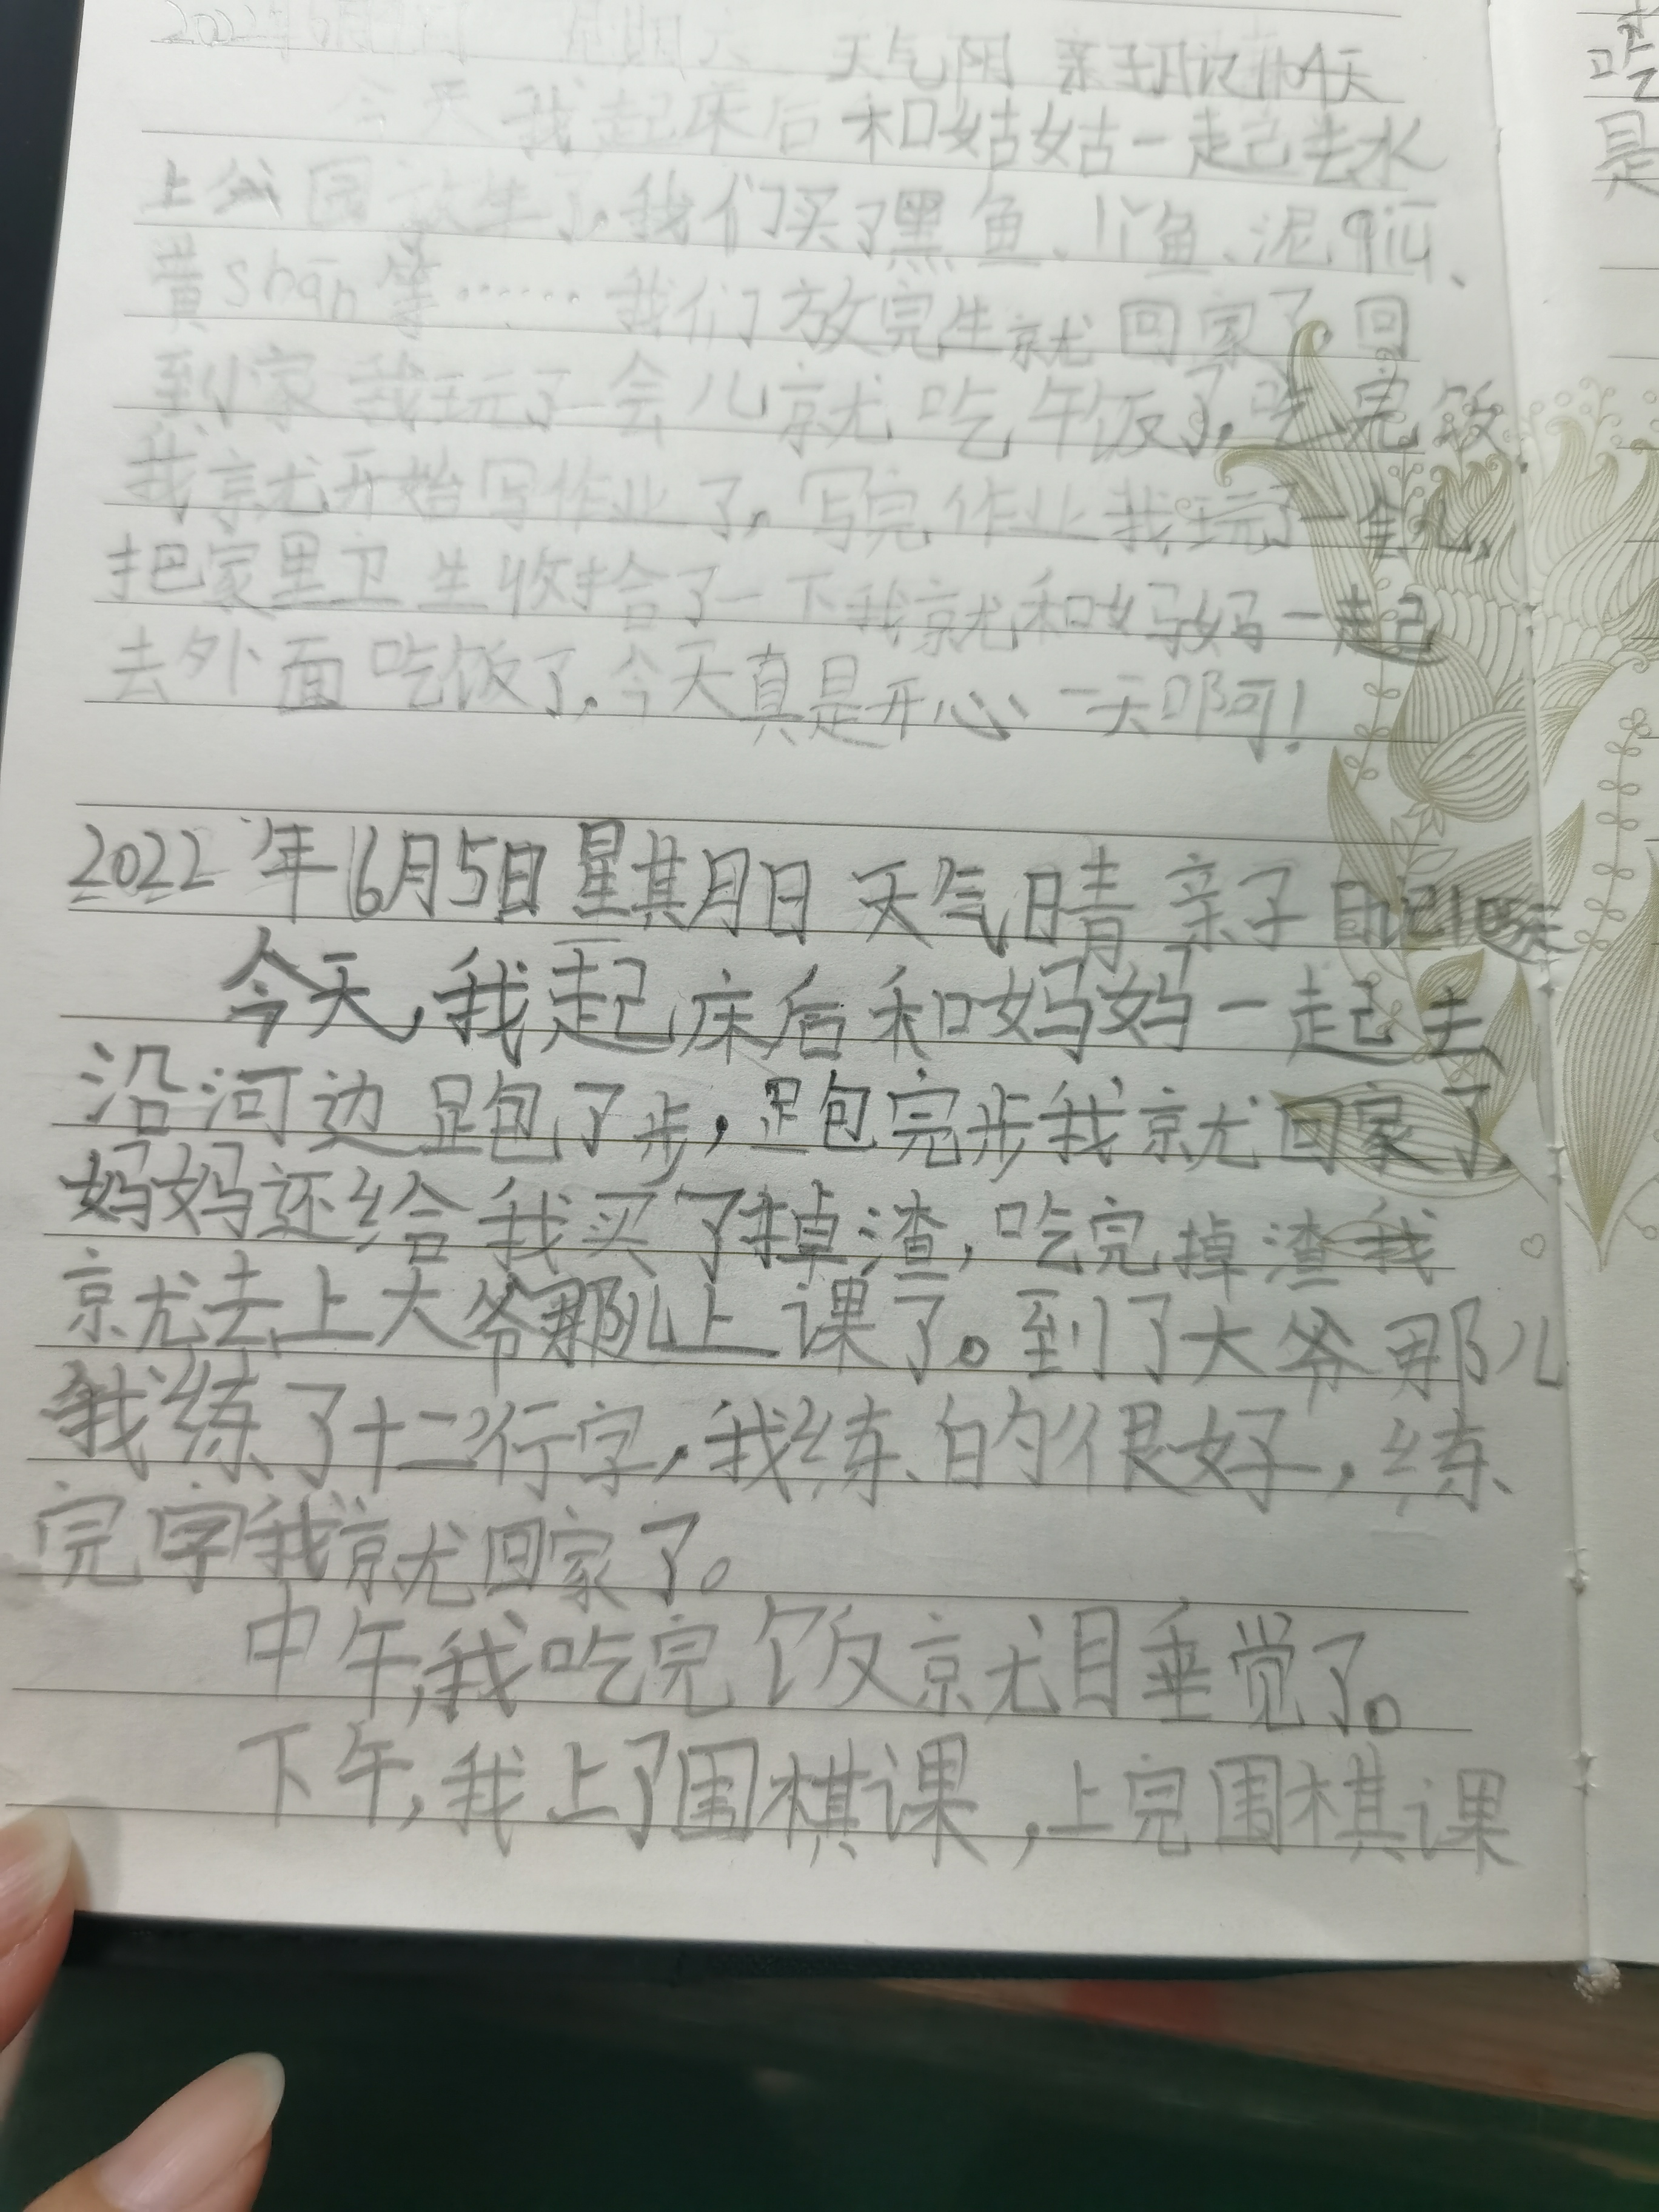 2022年6月 日 星期六 天气阴 亲子日记 天
今天我起床后和姑姑一起去水
上公园放生了,我们买了黑鱼、小鱼、泥qiū、
黄shàn等……我们放完生就回家了,回
到家我玩了一会儿就吃午饭了,吃完饭,
我就开始写作业了,写完作业我玩了一会儿,
把家里卫生收拾了一下我就和妈妈一起
去外面吃饭了,今天真是开心一天啊!
2022年6月5日星期日 天气晴 亲子日记
今天,我起床后和妈妈一起去
沿河边跑了步,跑完步我就回家了
妈妈还给我买了掉渣,吃完掉渣我
就去上大爷那儿上课了。到了大爷那儿
我练了十二行字,我练的很好,练
完字我就回家了。
中午,我吃完饭就睡觉了。
下午,我上了围棋课,上完围棋课
是